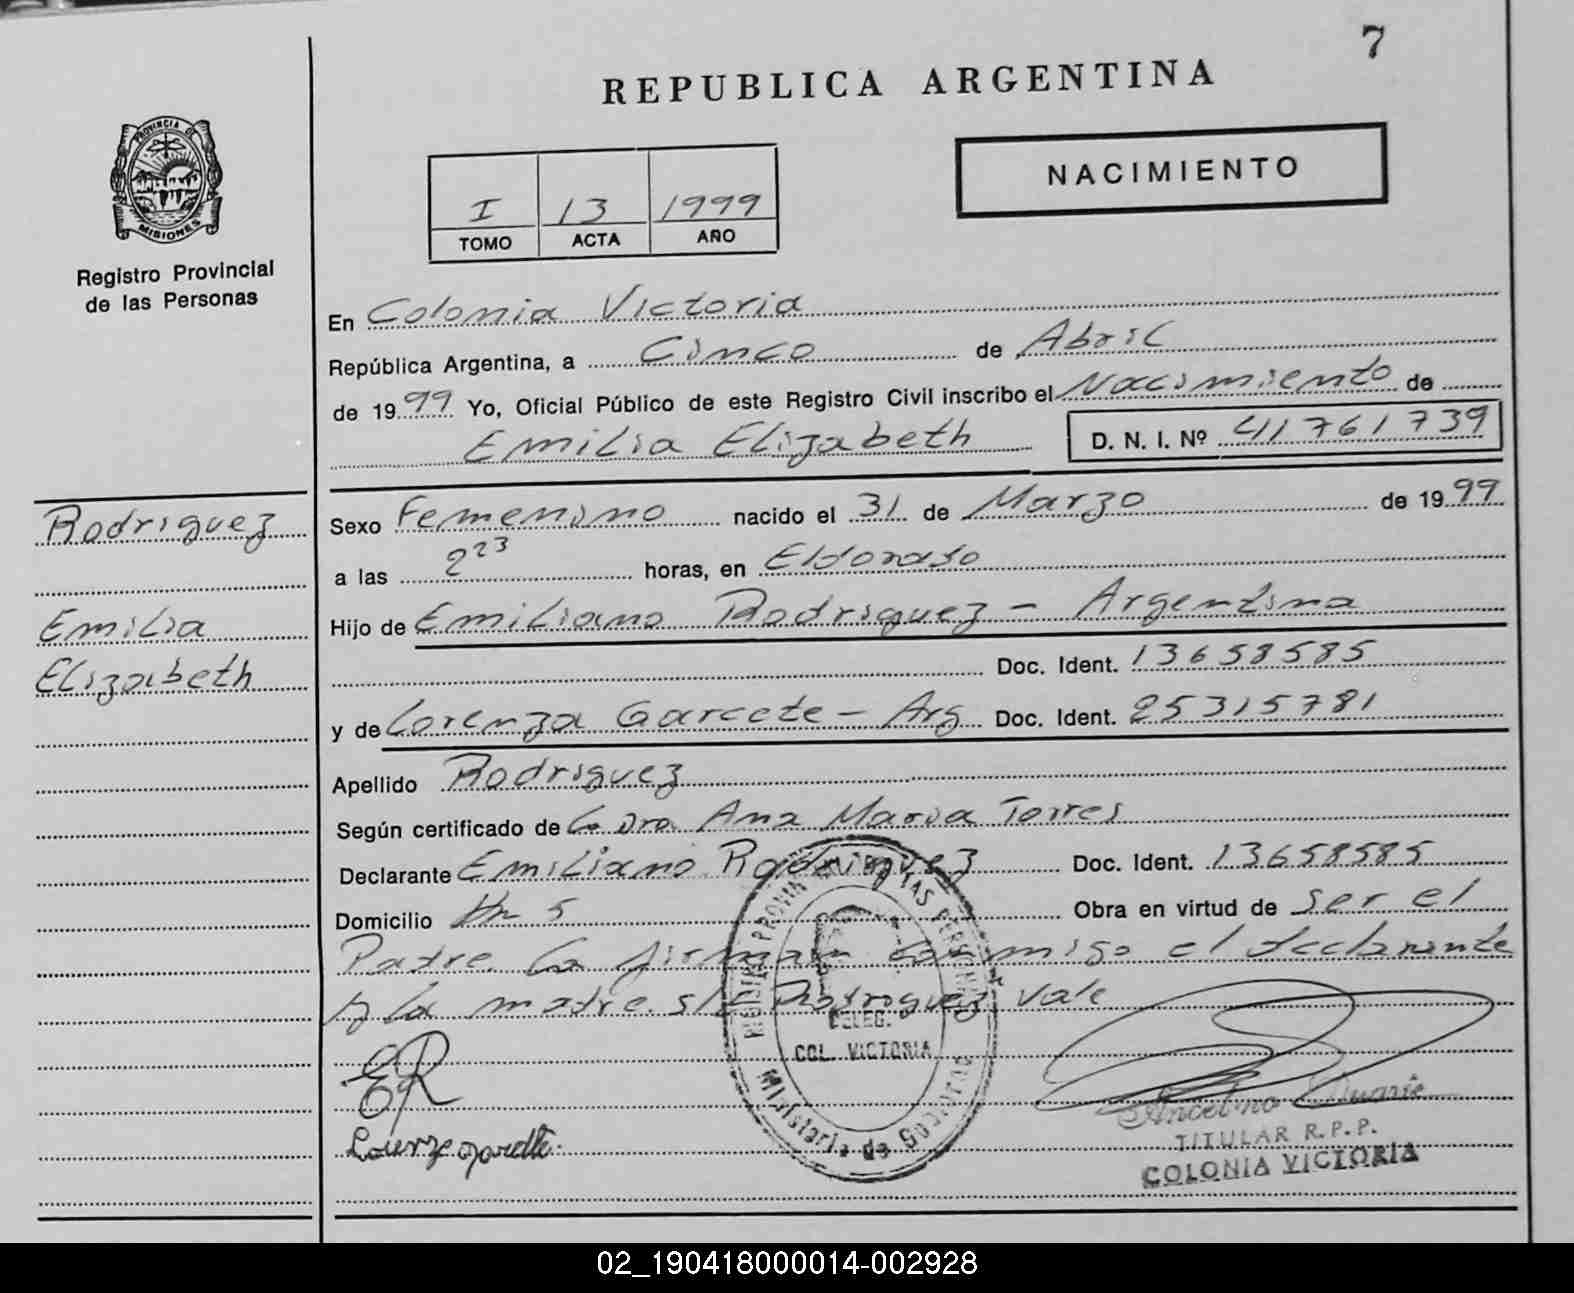 7
REPUBLICA ARGENTINA
NACIMIENTO
I 13 1999
TOMO ACTA AÑO
PROVINCIA DE
MISIONES
Registro Provincial
de las Personas
En Colonia Victoria
República Argentina, a Cinco de Abril
de 1999 Yo, Oficial Público de este Registro Civil inscribo el Nacimiento de
Emilia Elizabeth D. N. I. Nº 41761739
Rodriguez
Emilia
Elizabeth
Sexo Femenino nacido el 31 de Marzo de 1999
a las 2 23 horas, en Eldorado
Hijo de Emiliano Rodriguez - Argentina
Doc. Ident. 13658585
y de Lorenza Garcete - Arg Doc. Ident. 25315781
Apellido Rodriguez
Según certificado de La Dra Ana Maria Torres
Declarante Emiliano Rodriguez Doc. Ident. 13658585
Domicilio Km 5 Obra en virtud de ser el
Padre. La firman conmigo el declarante
y la madre. s/r Rodriguez vale
ER
DELEG.
COL. VICTORIA
Ministerio de Gobierno
Ancelmo Duarte
TITULAR R.P.P.
COLONIA VICTORIA
02_190418000014-002928